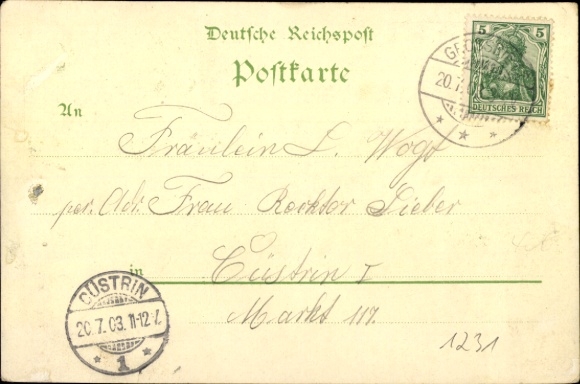 Deutsche Reichspost
Postkarte
5 5
DEUTSCHES REICH
20.7.03
An
Fräulein L. Vogt
per. Adr. Frau Recktor Sieber
in Cüstrin I
Markt 117.
CÜSTRIN
20.7.03. 11-12 V.
* 1 *
1231